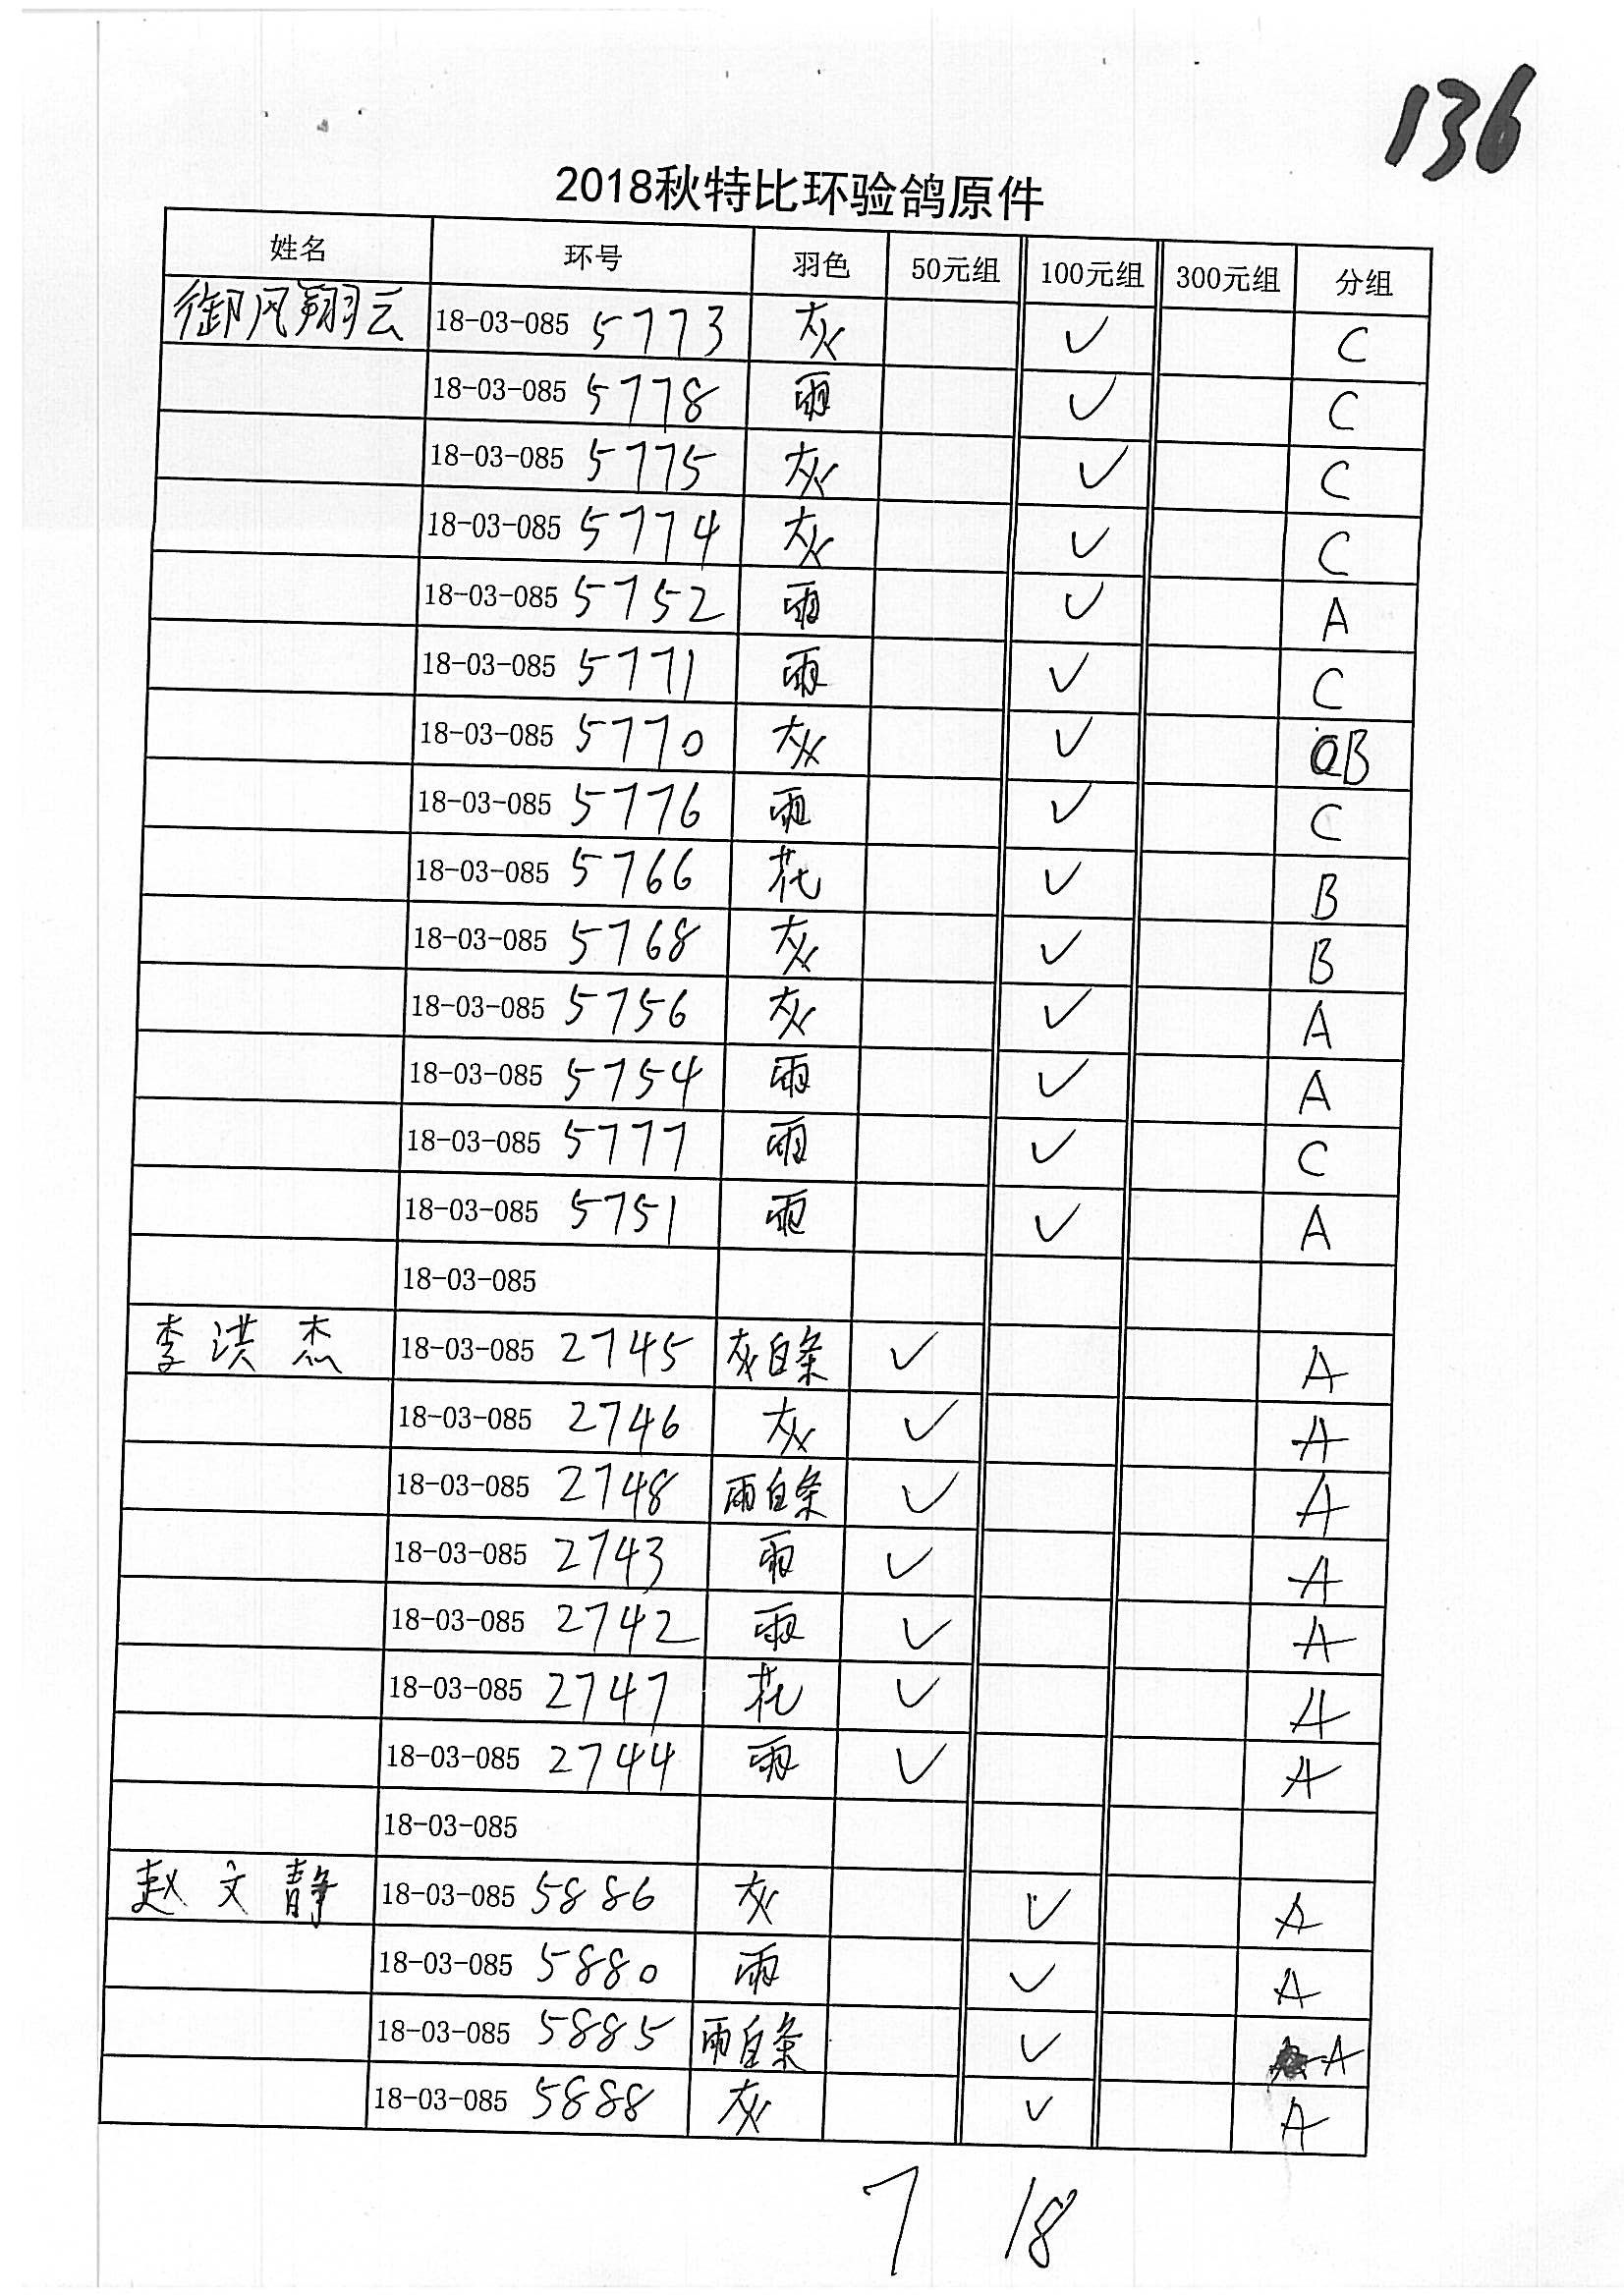 136
2018秋特比环验鸽原件
姓名 环号 羽色 50元组 100元组 300元组 分组
御风翔云 18-03-085 5773 灰 ✓ C
18-03-085 5778 雨 ✓ C
18-03-085 5775 灰 ✓ C
18-03-085 5774 灰 ✓ C
18-03-085 5752 雨 ✓ A
18-03-085 5771 雨 ✓ C
18-03-085 5770 灰 ✓ B
18-03-085 5776 雨 ✓ C
18-03-085 5766 花 ✓ B
18-03-085 5768 灰 ✓ B
18-03-085 5756 灰 ✓ A
18-03-085 5754 雨 ✓ A
18-03-085 5777 雨 ✓ C
18-03-085 5751 雨 ✓ A
18-03-085
李洪杰 18-03-085 2745 灰白条 ✓ A
18-03-085 2746 灰 ✓ A
18-03-085 2748 雨白条 ✓ A
18-03-085 2743 雨 ✓ A
18-03-085 2742 雨 ✓ A
18-03-085 2747 花 ✓ A
18-03-085 2744 雨 ✓ A
18-03-085
赵文静 18-03-085 5886 灰 ✓ A
18-03-085 5880 雨 ✓ A
18-03-085 5885 雨白条 ✓ A
18-03-085 5888 灰 ✓ A
7 18